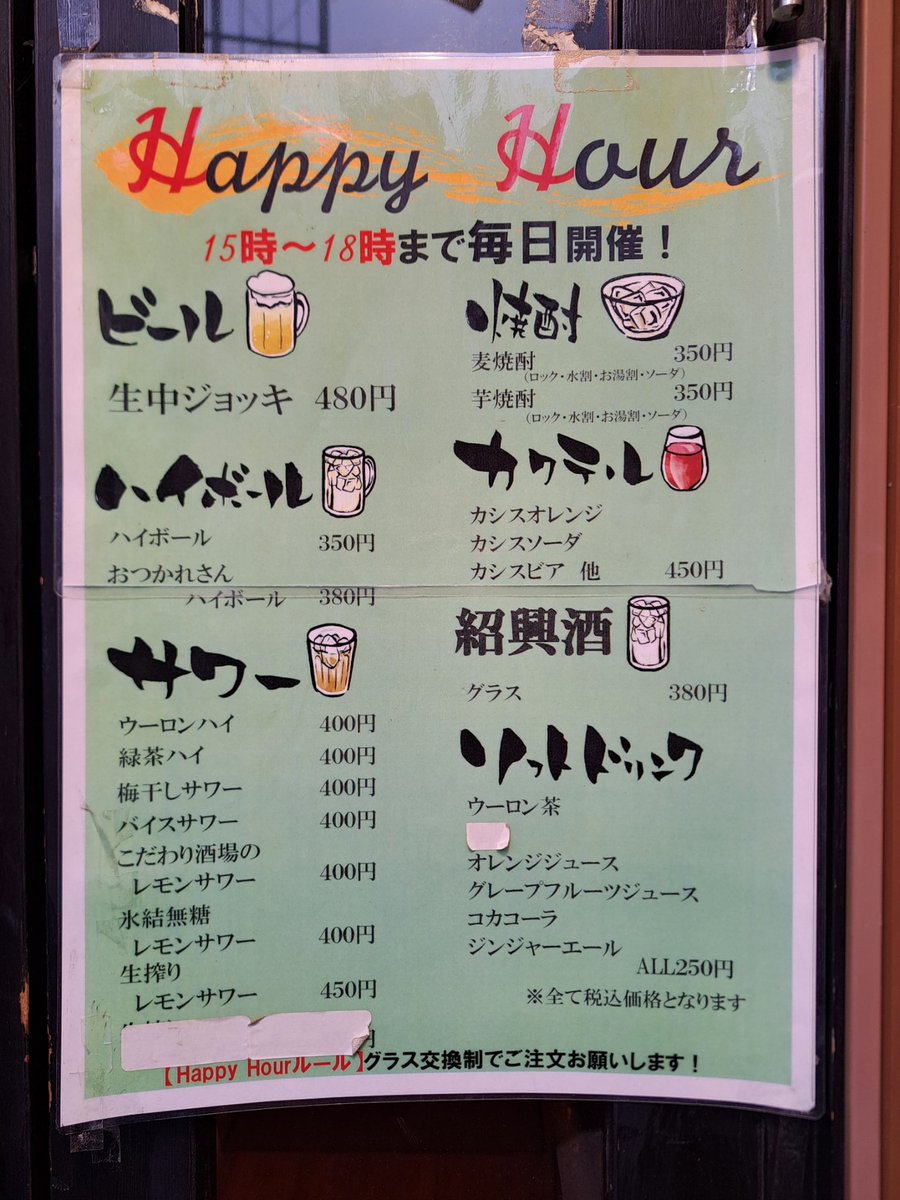 Happy Hour
15時～18時まで毎日開催！
ビール
生中ジョッキ 480円
ハイボール
ハイボール 350円
おつかれさん
ハイボール 380円
サワー
ウーロンハイ 400円
緑茶ハイ 400円
梅干しサワー 400円
バイスサワー 400円
こだわり酒場の
レモンサワー 400円
氷結無糖
レモンサワー 400円
生搾り
レモンサワー 450円
円
焼酎
麦焼酎 350円
（ロック・水割・お湯割・ソーダ）
芋焼酎 350円
（ロック・水割・お湯割・ソーダ）
カクテル
カシスオレンジ
カシスソーダ
カシスビア 他 450円
紹興酒
グラス 380円
ソフトドリンク
ウーロン茶
オレンジジュース
グレープフルーツジュース
コカコーラ
ジンジャーエール
ALL250円
※全て税込価格となります
【Happy Hourルール】グラス交換制でご注文お願いします！